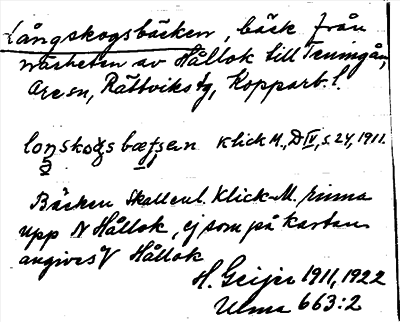 Långskogsbäcken, bäck från
närheten av Hållok till Tenningån,
Ore sn, Rättviks tg, Kopparb. l.
lonskogs bæssen Klick M., D IV, s. 24, 1911.
Bäcken skall enl. Klick-M. rinna
upp N Hållok, ej som på kartan
angives V Hållok
H. Geijer 1911, 1922
Ulma 663:2